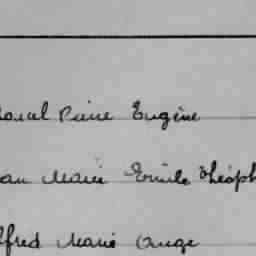 Marcel Pierre Eugène
Jean Marie Emile Théoph
Alfred Marie Ange